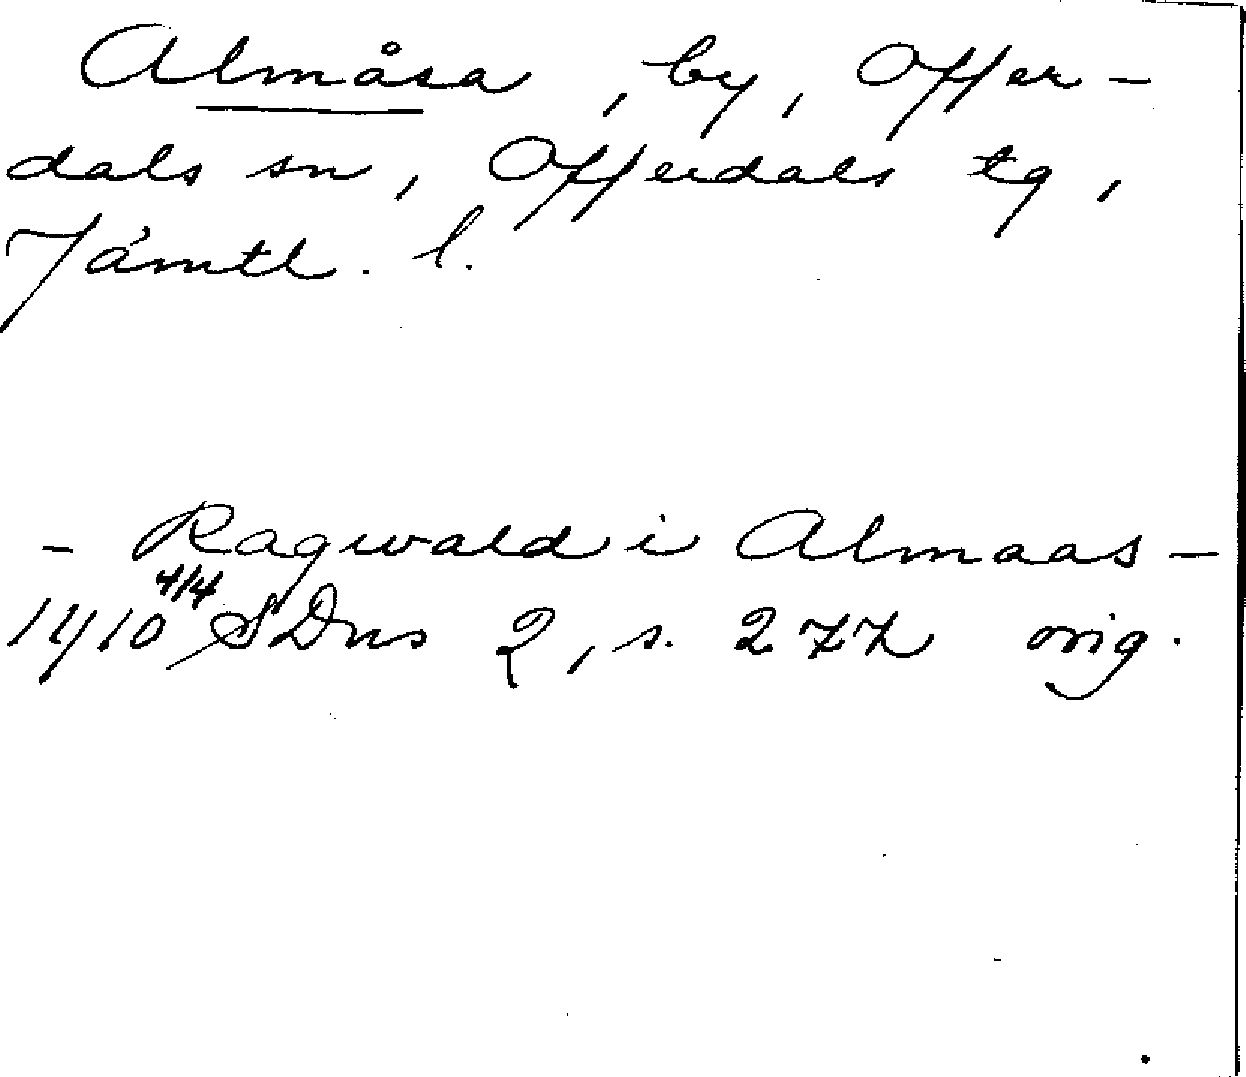 Almåsa, by, Offer-
dals sn, Offerdals tg,
Jämtl. l.
- Ragwald i Almaas -
1410 4/4 SDns 2, s. 277 orig.